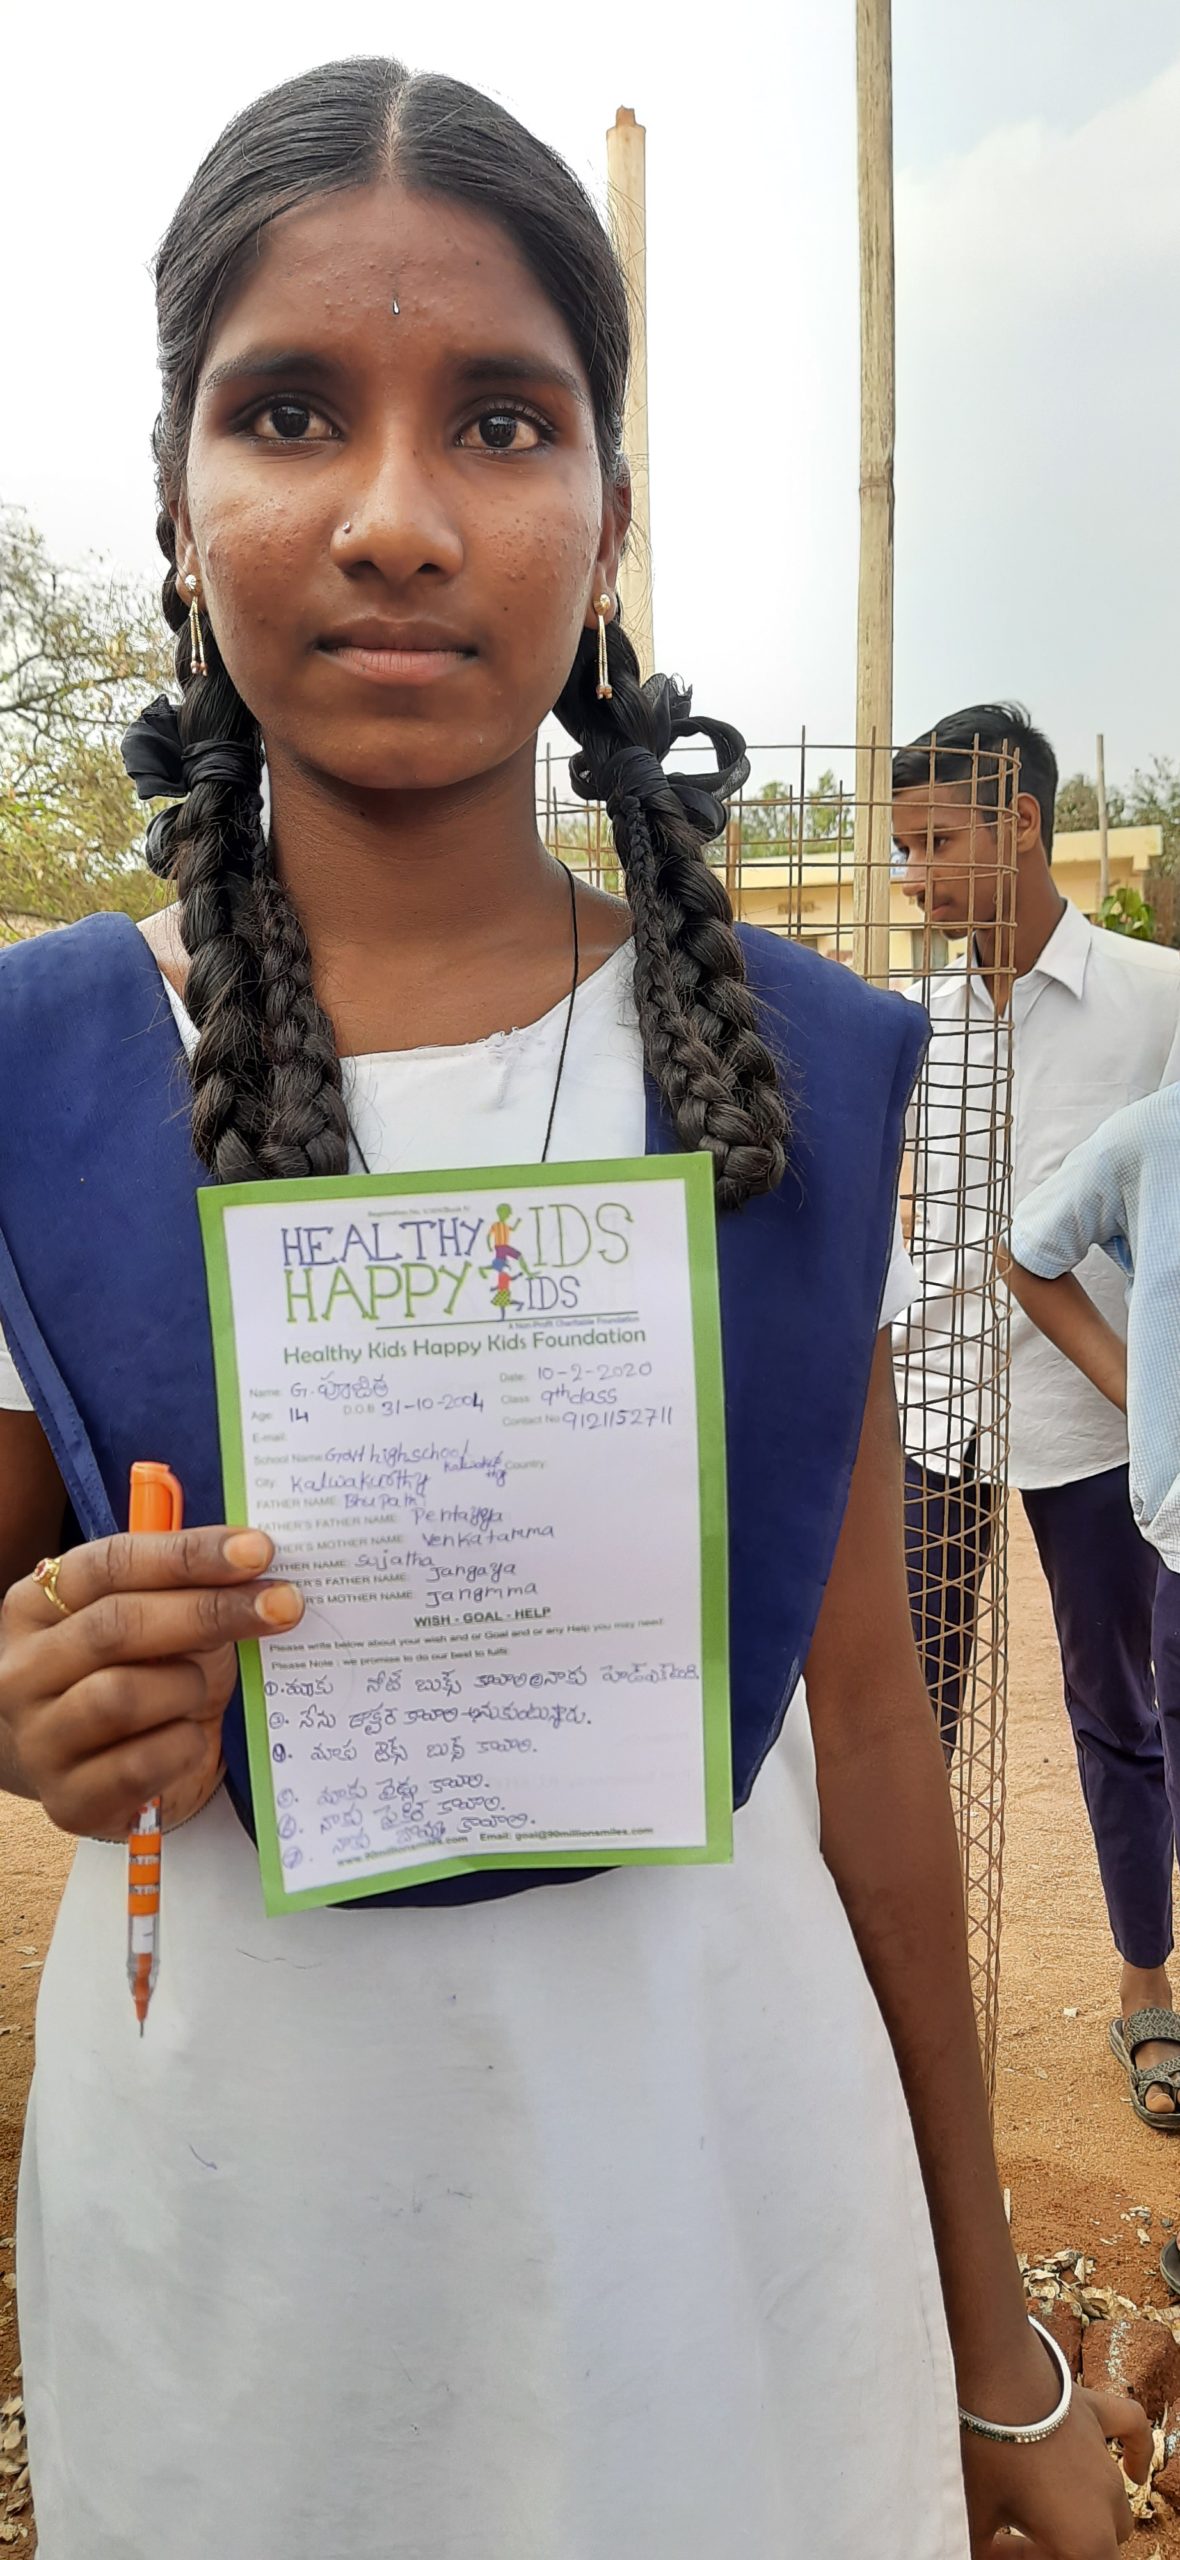 HEALTHY KIDS
HAPPY KIDS
A Non-Profit Charitable Foundation
Healthy Kids Happy Kids Foundation
Name: G. పూజిత Date: 10-2-2020
Age: 14 D.O.B 31-10-2004 Class: 9th class
E-mail: Contact No 9121152711
School Name: Govt high school Country:
City: Kalwakurthy
FATHER NAME: Bhupathi
FATHER'S FATHER NAME: Pentayya
HER'S MOTHER NAME: Venkatamma
OTHER NAME: Sujatha
ER'S FATHER NAME: Jangaya
R'S MOTHER NAME: Jangmma
WISH - GOAL - HELP
Please write below about your wish and or Goal and or any Help you may need.
Please Note: we promise to do our best to fulfil
①. మాకు నోట్ బుక్స్ కావాలి నాకు
③. నేను డాక్టర్ కావాలి అనుకుంటున్నాను.
④. మాకు టెక్స్ బుక్స్ కావాలి.
మాకు కావాలి.
నాకు కావాలి.
నాకు కావాలి.
www.90millionsmiles.com Email: goal@90millionsmiles.com